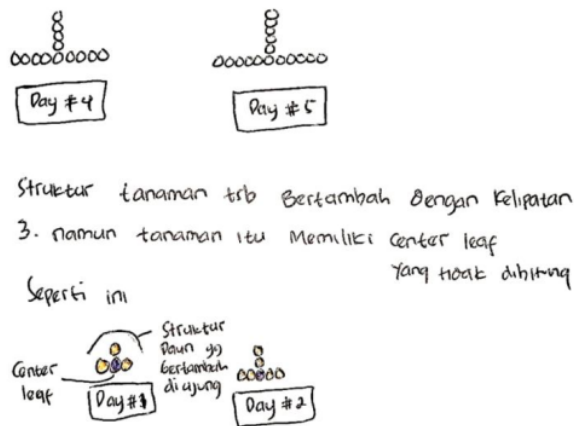 Day #4
Day #5
Struktur tanaman trb Bertambah Dengan Kelipatan
3. namun tanaman itu Memiliki Center leaf
yang tidak dihitung
Seperti ini
Center leaf
Struktur Daun yg bertambah di ujung
Day #1
Day #2